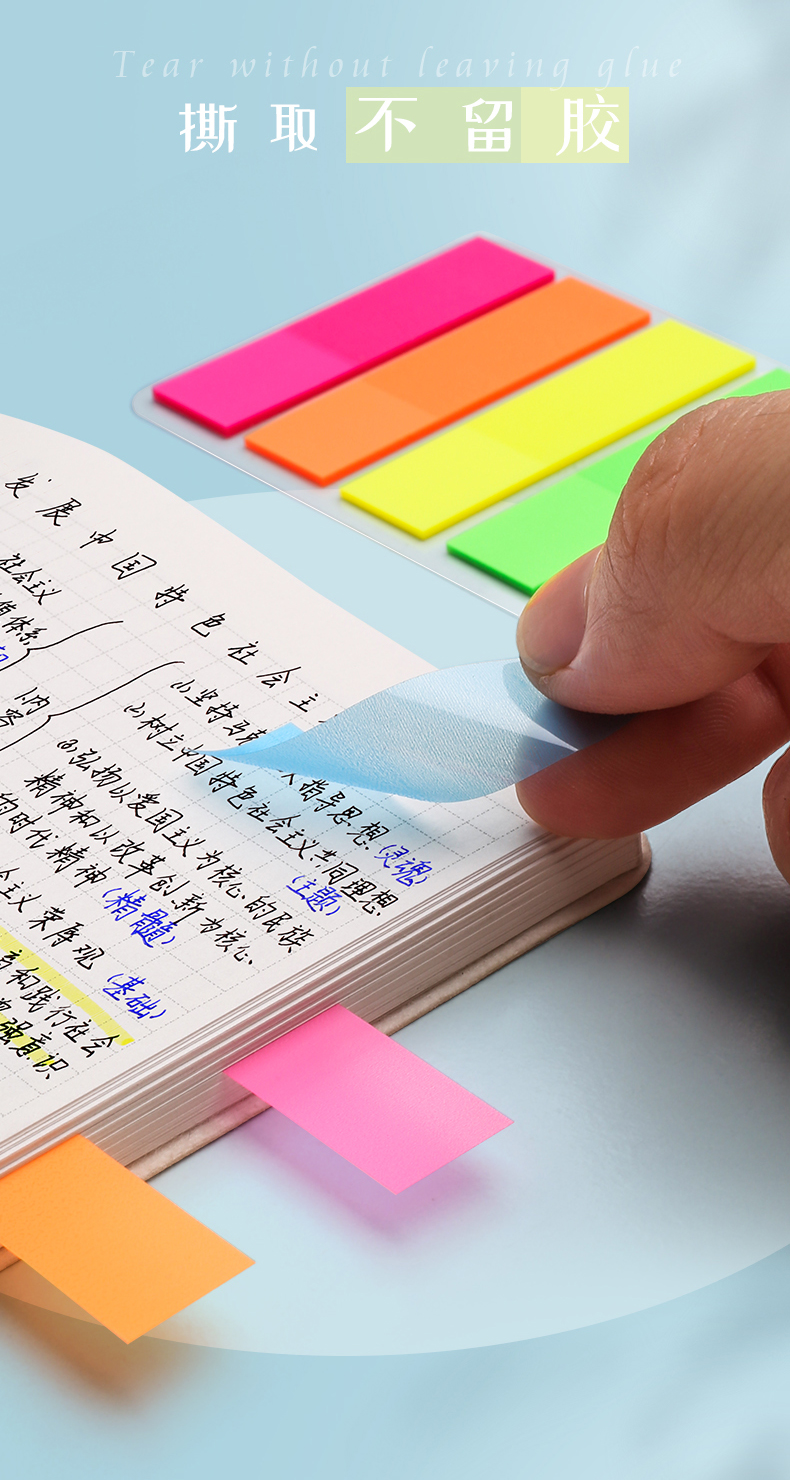 Tear without leaving glue
撕取不留胶
发展中国特色社会主
社会主义
值体系
内
容
(1)坚持马 人指导思想(灵魂)
(2)树立中国特色社会主义共同理想
(主题)
(3)弘扬以爱国主义为核心的民族
精神和以改革创新为核心
的时代精神(精髓)
会主义荣辱观(基础)
和践行社会
强意识